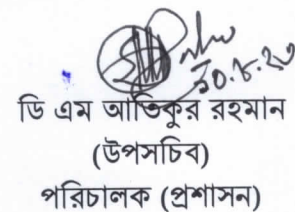 ডি এম আতিকুর রহমান
(উপসচিব)
পরিচালক (প্রশাসন)